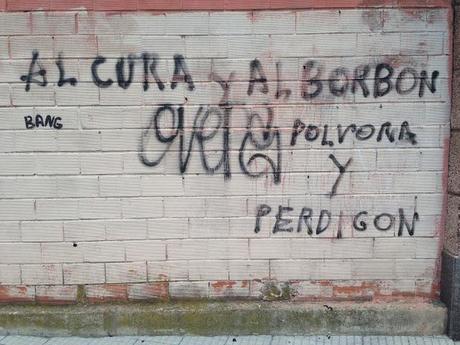 AL CURA Y AL BORBON
BANG
POLVORA
Y
PERDIGON